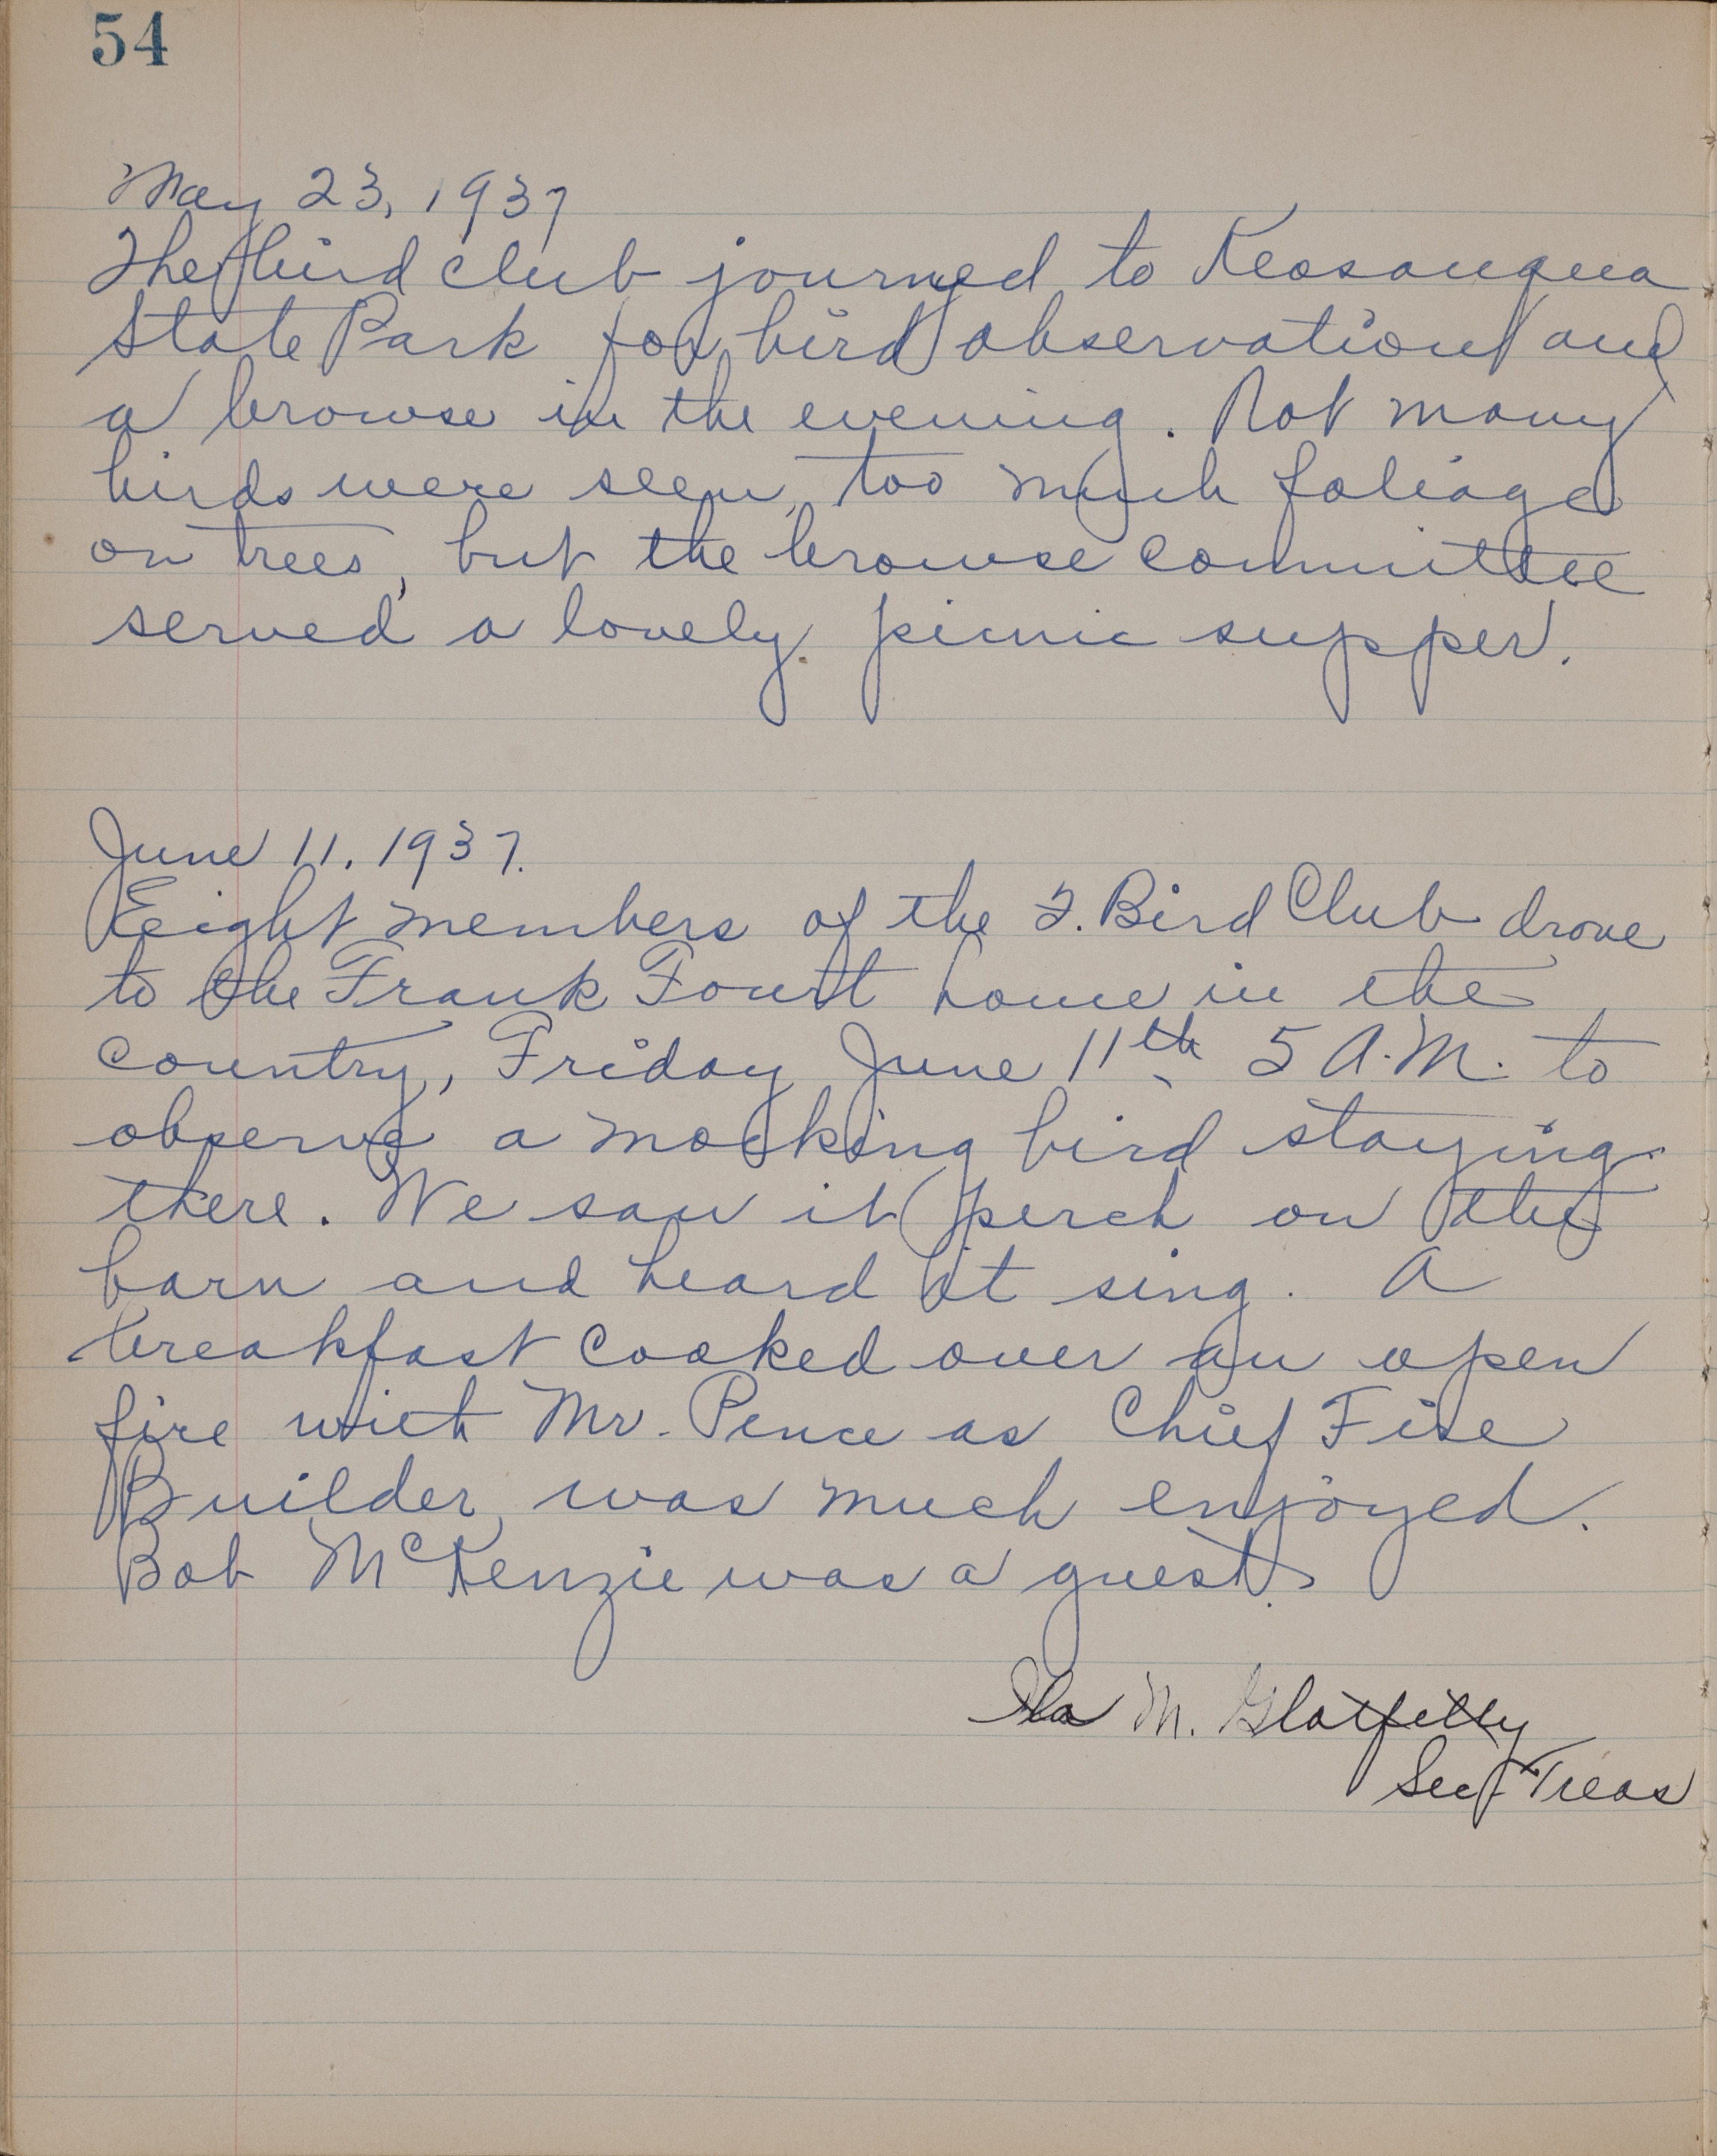 54
May 23, 1937
The bird club journyed to Keosauqua
State Park for bird observation and
a browse in the evening. Not many
birds were seen, too much foliage
on trees, but the browse committee
served a lovely picnic supper.
June 11, 1937.
Eight members of the F. Bird Club drove
to the Frank Fourt home in the
country, Friday June 11th 5 A.M. to
observe a mocking bird staying
there. We saw it perch on the
barn and heard it sing. A
breakfast cooked over an open
fire with Mr. Pence as Chief Fire
Builder, was much enjoyed.
Bob McKenzie was a guest.
Ila M. Glotfelty
Sec Treas